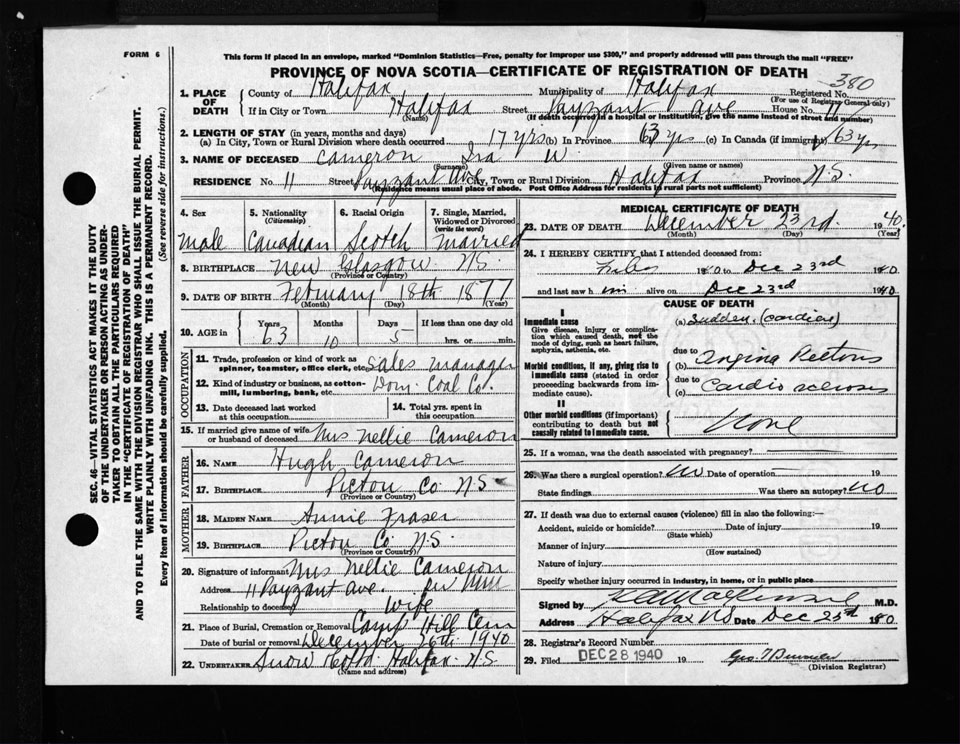 FORM 6
This form if placed in an envelope, marked "Dominion Statistics—Free, penalty for improper use $300," and properly addressed will pass through the mail "FREE"
PROVINCE OF NOVA SCOTIA—CERTIFICATE OF REGISTRATION OF DEATH
380
1. PLACE OF DEATH
County of Halifax Municipality of Halifax Registered No.
(For use of Registrar General only)
If in City or Town Halifax Street Payzant Ave House No. 11
(Name) (If death occurred in a hospital or institution, give the name instead of street and number)
2. LENGTH OF STAY (in years, months and days)
(a) In City, Town or Rural Division where death occurred 17 yrs (b) In Province 63 yrs (c) In Canada (if immigrant) 63 yrs
3. NAME OF DECEASED Cameron Ira W.
(Surname) (Given name or names)
RESIDENCE No. 11 Street Payzant Ave City, Town or Rural Division Halifax Province N.S.
(Residence means usual place of abode. Post Office Address for residents in rural parts not sufficient)
4. Sex
Male
5. Nationality (Citizenship)
Canadian
6. Racial Origin
Scotch
7. Single, Married, Widowed or Divorced (write the word)
Married
8. BIRTHPLACE New Glasgow N.S.
(Province or Country)
9. DATE OF BIRTH February 18th 1877
(Month) (Day) (Year)
10. AGE in
Years Months Days If less than one day old
63 10 5 hrs. or min.
OCCUPATION
11. Trade, profession or kind of work as spinner, teamster, office clerk, etc. Sales manager
12. Kind of industry or business, as cotton-mill, lumbering, bank, etc. Dom. Coal Co.
13. Date deceased last worked at this occupation
14. Total yrs. spent in this occupation
15. If married give name of wife or husband of deceased Mrs Nellie Cameron
FATHER
16. NAME Hugh Cameron
17. BIRTHPLACE Pictou Co N.S.
(Province or Country)
MOTHER
18. MAIDEN NAME Annie Fraser
19. BIRTHPLACE Pictou Co. N.S.
(Province or Country)
20. Signature of informant Mrs Nellie Cameron
Address 11 Payzant Ave. per
Relationship to deceased Wife
21. Place of Burial, Cremation or Removal Camp Hill Cem
Date of burial or removal December 26th 1940
22. UNDERTAKER Snow & Co Ltd. Halifax N.S.
(Name and address)
MEDICAL CERTIFICATE OF DEATH
23. DATE OF DEATH December 23rd 1940.
(Month) (Day) (Year)
24. I HEREBY CERTIFY that I attended deceased from:
1940 to Dec 23rd 1940
and last saw him alive on Dec 23rd 1940
CAUSE OF DEATH
I
Immediate cause
Give disease, injury or complication which caused death, not the mode of dying, such as heart failure, asphyxia, asthenia, etc.
(a) Sudden. (cardiac)
due to
Morbid conditions, if any, giving rise to immediate cause (stated in order proceeding backwards from immediate cause).
(b) Angina Pectoris
due to
(c) Cardio sclerosis
II
Other morbid conditions (if important) contributing to death but not causally related to immediate cause.
None
25. If a woman, was the death associated with pregnancy?
26. Was there a surgical operation? No Date of operation 19
State findings Was there an autopsy? No
27. If death was due to external causes (violence) fill in also the following:—
Accident, suicide or homicide? Date of injury 19
(State which)
Manner of injury
(How sustained)
Nature of injury
Specify whether injury occurred in industry, in home, or in public place
Signed by MacKenzie M.D.
Address Halifax NS Date Dec 25th 1940
28. Registrar's Record Number
29. Filed DEC 28 1940 19
(Division Registrar)
SEC. 46—VITAL STATISTICS ACT MAKES IT THE DUTY
OF THE UNDERTAKER OR PERSON ACTING AS UNDER-
TAKER TO OBTAIN ALL THE PARTICULARS REQUIRED
IN THE "CERTIFICATE OF REGISTRATION OF DEATH"
AND TO FILE THE SAME WITH THE DIVISION REGISTRAR WHO SHALL ISSUE THE BURIAL PERMIT.
WRITE PLAINLY WITH UNFADING INK. THIS IS A PERMANENT RECORD.
Every item of information should be carefully supplied. (See reverse side for instructions.)